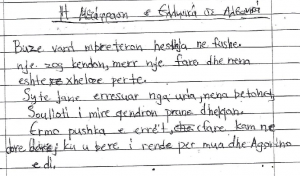 Buze vard mbreteron heshtja ne fushe.
nje zog kendon, merr nje fare dhe nena
eshte xheloze per te.
Syte jane erresuar nga uria, nena betohet
Soulioti i mire qendron prane dhe qan.
Ermo pushka e erret, cfare kam ne
dore ku u bere i rende per mua dhe Agarino
e di.